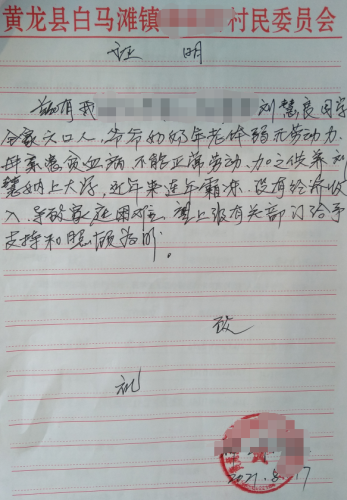 黄龙县白马滩镇 村民委员会
证 明
兹有我 刘慧良同学
全家六口人,爷爷奶奶年老体弱无劳动力,
母亲患贫血病,不能正常劳动,力之供养刘
慧纳上大学,近年来连年霜冻,没有经济收
入,导致家庭困难,望上级有关部门给予
支持和照顾为盼。
致
礼
2021.8.17